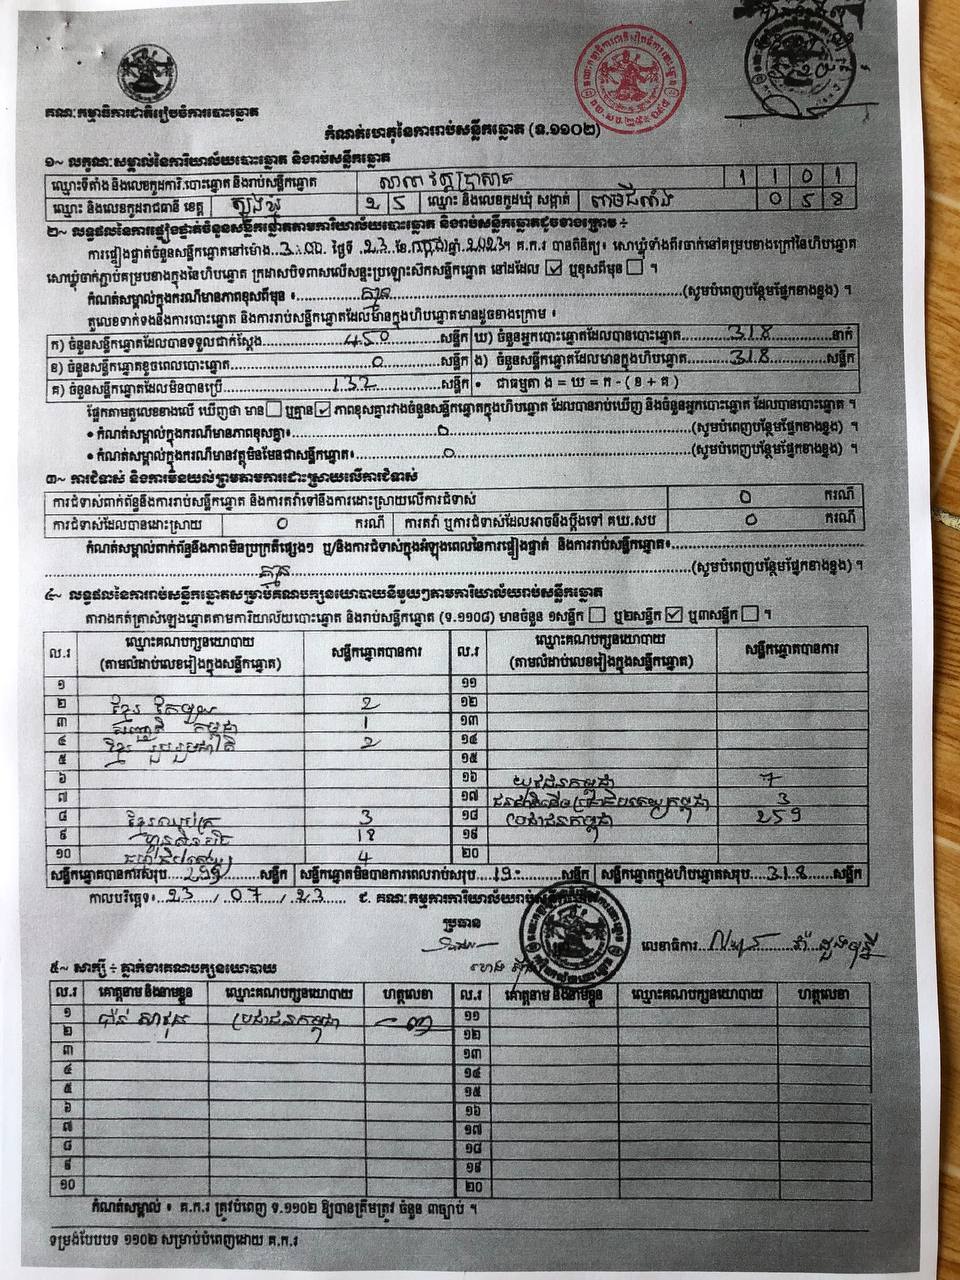 គណៈកម្មាធិការជាតិរៀបចំការបោះឆ្នោត
កំណត់ហេតុនៃការរាប់សន្លឹកឆ្នោត (ទ.១១០២)
១~ លក្ខណៈសម្គាល់នៃការិយាល័យបោះឆ្នោត និងរាប់សន្លឹកឆ្នោត
ឈ្មោះទីតាំង និងលេខកូដការិ.បោះឆ្នោត និងរាប់សន្លឹកឆ្នោត សាលា វត្តប្រាសាទ 1 1 0 1
ឈ្មោះ និងលេខកូដរាជធានី ខេត្ត ត្បូងឃ្មុំ 2 5 ឈ្មោះ និងលេខកូដឃុំ សង្កាត់ 0 5 8
២~ លទ្ធផលនៃការផ្ទៀងផ្ទាត់ចំនួនសន្លឹកឆ្នោតតាមការិយាល័យបោះឆ្នោត និងរាប់សន្លឹកឆ្នោតដូចខាងក្រោម ÷
ការផ្ទៀងផ្ទាត់ចំនួនសន្លឹកឆ្នោតនៅម៉ោង 3:00 ថ្ងៃទី 23 ខែ កក្កដា ឆ្នាំ 2023។ គ.ក.រ បានពិនិត្យ៖ សោឃ្លុំទាំងពីរចាក់នៅគម្របខាងក្រៅនៃហិបឆ្នោត
សោឃ្លុំចាក់ភ្ជាប់គម្របខាងក្នុងនៃហិបឆ្នោត ក្រដាសបិទពាសលើសន្ទះប្រឡោះសិកសន្លឹកឆ្នោត នៅដដែល ☑ ឬខុសពីមុន ☐ ។
កំណត់សម្គាល់ក្នុងករណីមានភាពខុសពីមុន ៖ គ្មាន (សូមបំពេញបន្ថែមផ្នែកខាងខ្នង) ។
តួលេខទាក់ទងនឹងការបោះឆ្នោត និងការរាប់សន្លឹកឆ្នោតដែលមានក្នុងហិបឆ្នោតមានដូចខាងក្រោម ៖
ក) ចំនួនសន្លឹកឆ្នោតដែលបានទទួលជាក់ស្តែង 450 សន្លឹក ឃ) ចំនួនអ្នកបោះឆ្នោតដែលបានបោះឆ្នោត 318 នាក់
ខ) ចំនួនសន្លឹកឆ្នោតខូចពេលបោះឆ្នោត 0 សន្លឹក ង) ចំនួនសន្លឹកឆ្នោតដែលមានក្នុងហិបឆ្នោត 318 សន្លឹក
គ) ចំនួនសន្លឹកឆ្នោតដែលមិនបានប្រើ 132 សន្លឹក • ជាធម្មតា ង = ឃ = ក - ( ខ + គ )
ផ្អែកតាមតួលេខខាងលើ ឃើញថា មាន ☐ ឬគ្មាន ☑ ភាពខុសគ្នារវាងចំនួនសន្លឹកឆ្នោតក្នុងហិបឆ្នោត ដែលបានរាប់ឃើញ និងចំនួនអ្នកបោះឆ្នោត ដែលបានបោះឆ្នោត ។
• កំណត់សម្គាល់ក្នុងករណីមានភាពខុសគ្នា៖ 0 (សូមបំពេញបន្ថែមផ្នែកខាងខ្នង) ។
• កំណត់សម្គាល់ក្នុងករណីមានវត្ថុមិនមែនជាសន្លឹកឆ្នោត៖ 0 (សូមបំពេញបន្ថែមផ្នែកខាងខ្នង) ។
៣~ ការជំទាស់ និងការមិនយល់ព្រមតាមការដោះស្រាយលើការជំទាស់
ការជំទាស់ពាក់ព័ន្ធនឹងការរាប់សន្លឹកឆ្នោត និងការតវ៉ាទៅនឹងការដោះស្រាយលើការជំទាស់ 0 ករណី
ការជំទាស់ដែលបានដោះស្រាយ 0 ករណី ការតវ៉ា ឬការជំទាស់ដែលអាចនឹងប្តឹងទៅ គឃ.សប 0 ករណី
កំណត់សម្គាល់ពាក់ព័ន្ធនឹងភាពមិនប្រក្រតីផ្សេងៗ ឬ/និងការជំទាស់ក្នុងអំឡុងពេលនៃការផ្ទៀងផ្ទាត់ និងការរាប់សន្លឹកឆ្នោត៖
គ្មាន (សូមបំពេញបន្ថែមផ្នែកខាងខ្នង) ។
៤~ លទ្ធផលនៃការរាប់សន្លឹកឆ្នោតសម្រាប់គណបក្សនយោបាយនីមួយៗតាមការិយាល័យរាប់សន្លឹកឆ្នោត
តារាងកត់ត្រាសំឡេងឆ្នោតតាមការិយាល័យបោះឆ្នោត និងរាប់សន្លឹកឆ្នោត (ទ.១១០៨) មានចំនួន ១សន្លឹក ☐ ឬ២សន្លឹក ☑ ឬ៣សន្លឹក ☐ ។
ល.រ ឈ្មោះគណបក្សនយោបាយ (តាមលំដាប់លេខរៀងក្នុងសន្លឹកឆ្នោត) សន្លឹកឆ្នោតបានការ ល.រ ឈ្មោះគណបក្សនយោបាយ (តាមលំដាប់លេខរៀងក្នុងសន្លឹកឆ្នោត) សន្លឹកឆ្នោតបានការ
១ ១១
២ ខ្មែរ 2 ១២
៣ កម្ពុជា 1 ១៣
៤ ខ្មែរ រួបរួមជាតិ 2 ១៤
៥ ១៥
៦ ១៦ យុវជនកម្ពុជា 7
៧ ១៧ ជនជាតិដើមប្រជាធិបតេយ្យកម្ពុជា 3
៨ 3 ១៨ ប្រជាជនកម្ពុជា 259
៩ ហ្វ៊ុនស៊ិនប៉ិច 18 ១៩
១០ 4 ២០
សន្លឹកឆ្នោតបានការសរុប 299 សន្លឹក សន្លឹកឆ្នោតមិនបានការពេលរាប់សរុប 19 សន្លឹក សន្លឹកឆ្នោតក្នុងហិបឆ្នោតសរុប 318 សន្លឹក
កាលបរិច្ឆេទ៖ 23 / 07 / 23 ជ. គណៈកម្មការការិយាល័យរាប់សន្លឹកឆ្នោត
ប្រធាន
លេខាធិការ
៥~ សាក្សី ÷ ភ្នាក់ងារគណបក្សនយោបាយ
ល.រ គោត្តនាម និងនាមខ្លួន ឈ្មោះគណបក្សនយោបាយ ហត្ថលេខា ល.រ គោត្តនាម និងនាមខ្លួន ឈ្មោះគណបក្សនយោបាយ ហត្ថលេខា
១ ប្រជាជនកម្ពុជា ១១
២ ១២
៣ ១៣
៤ ១៤
៥ ១៥
៦ ១៦
៧ ១៧
៨ ១៨
៩ ១៩
១០ ២០
កំណត់សម្គាល់ ៖ គ.ក.រ ត្រូវបំពេញ ទ.១១០២ ឱ្យបានត្រឹមត្រូវ ចំនួន ៣ច្បាប់ ។
ទម្រង់បែបបទ ១១០២ សម្រាប់បំពេញដោយ គ.ក.រ